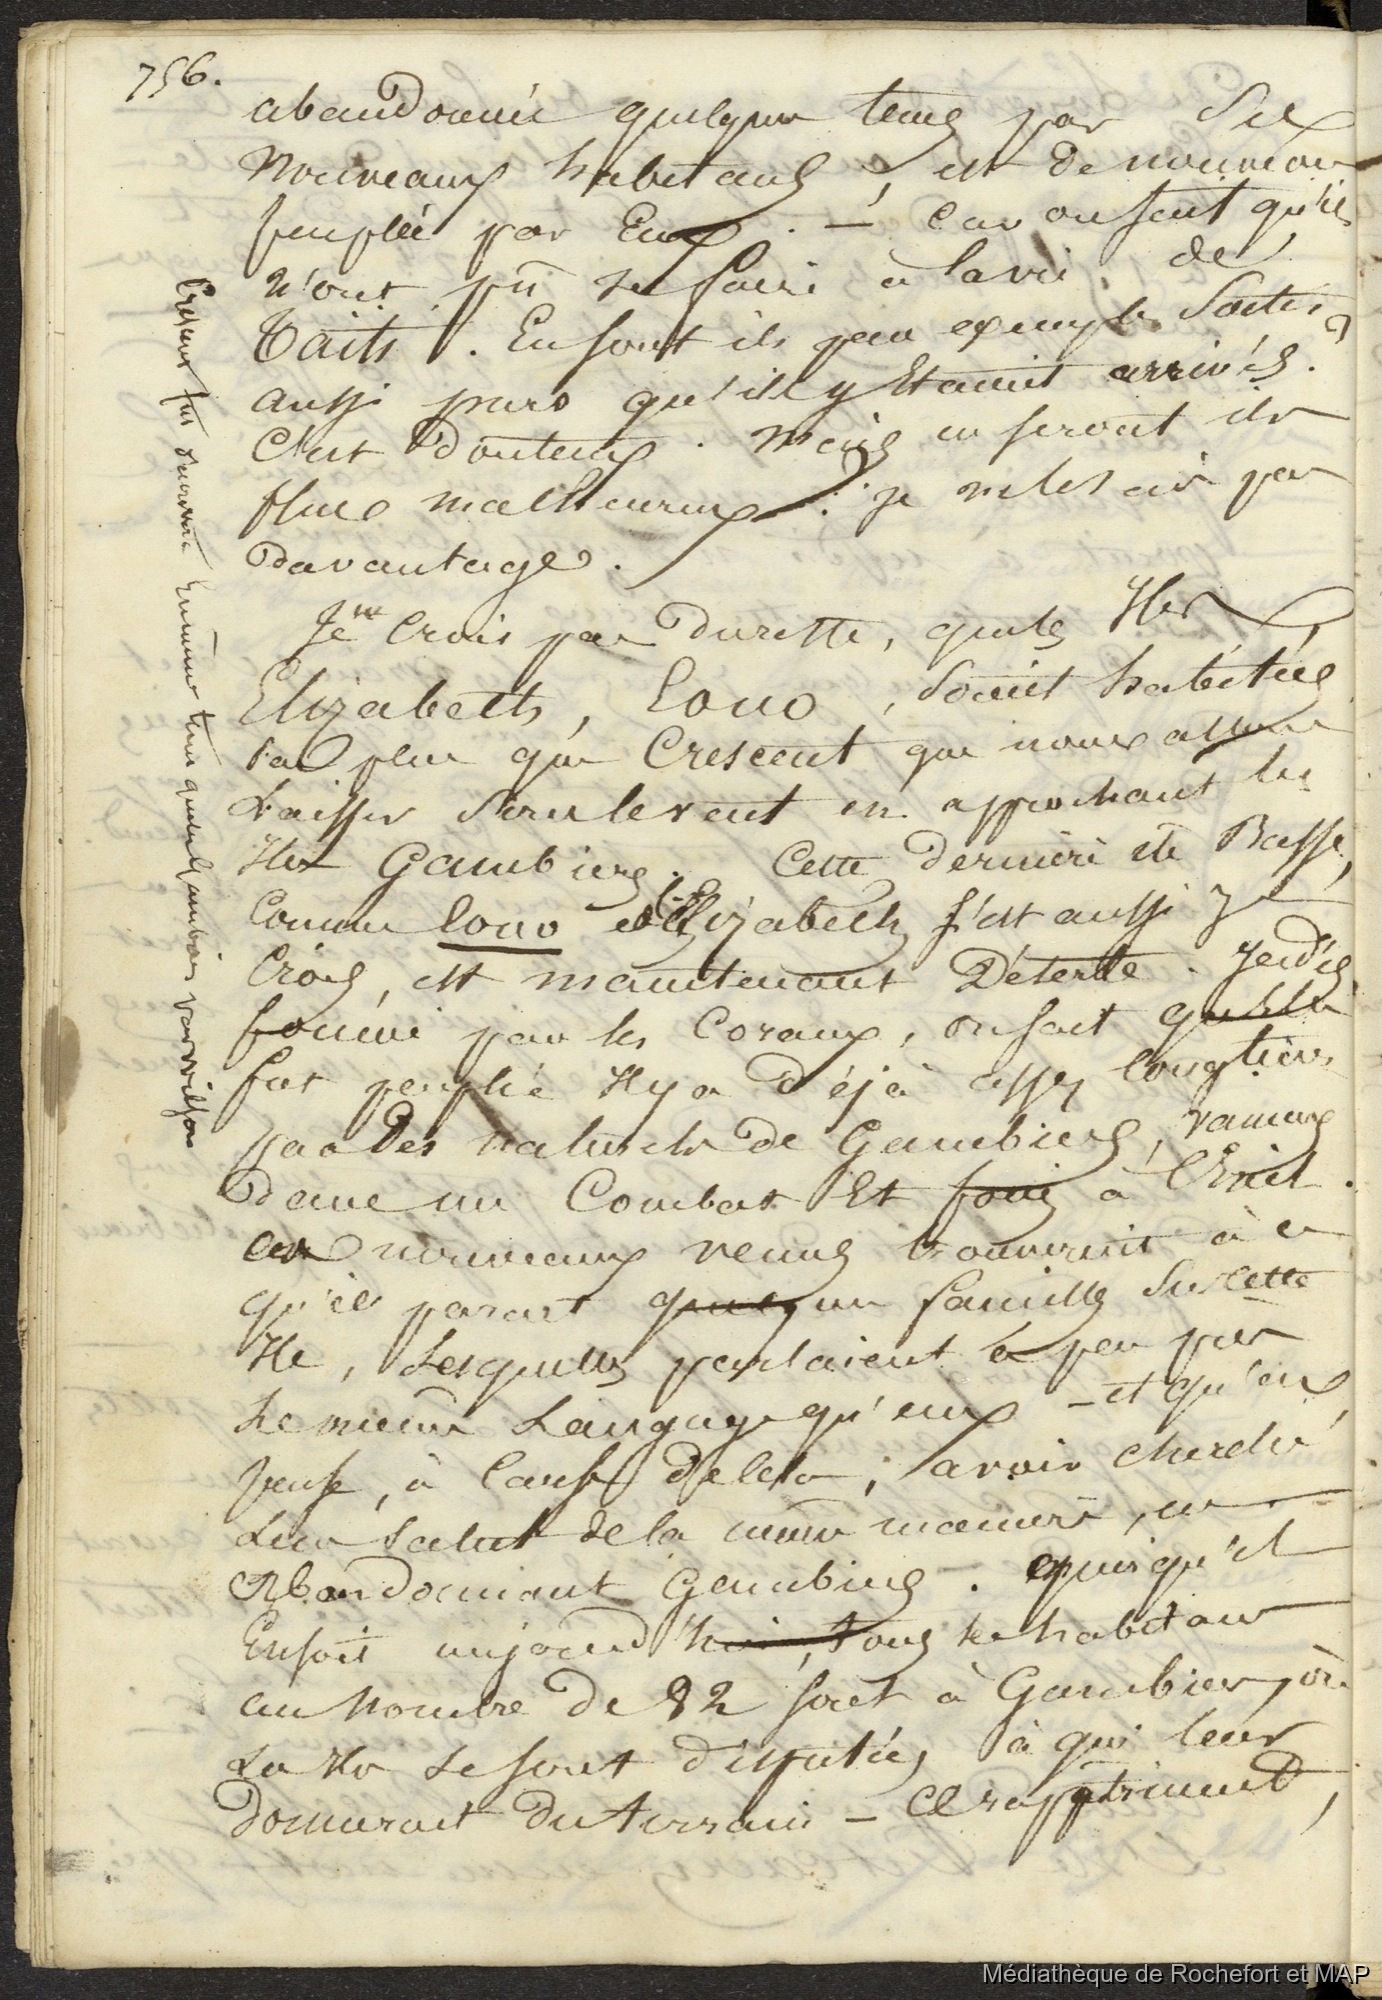 756.
abandonnée quelque tems par Ses
Nouveaux habitans, est de nouveau
peuplée par Eux. — Car on sent qu'ils
n'ont pû se faire à la vie de
Taïti. En sont ils par exemple Sortis
aussi purs qu'ils y Etaient arrivés ?
C'est Douteux. Mais en seront ils
plus malheureux ? je ne le sais pas
Davantage.
Je ne Crois pas Du reste, que les Iles
Elizabeth, Lono, Soient habitées
pas plus que Crescent que nous allons
Laisser Sous le vent en approchant les
Iles Gambiers. Cette Dernière Ile Basse,
Comme Lono et Elizabeth l'est aussi je
Crois, est maintenant Déserte. Jadis
formée par les Coraux, on sait qu'elle
fut peuplée Il y a Déjà assez longtems
par Des naturels de Gambiers, vaincus
dans un Combat Et à l'Exil.
Ces nouveaux venus trouvèrent à ce
qu'il parait une famille Sur Cette
Ile, Lesquelles parlaient à peu près
le même Langage qu'eux — et qu'on
pense, à Cause de cela, avoir cherché
Leur Salut de la même manière, en
Abandonnant Gambiers. quoiqu'il
En soit aujourd'hui, tous les habitans
au Nombre De 82 sont à Gambier, où
Le Ho Se sont Disputés à qui leur
Donnerait Du terrain — Ce rapatriement,
Crescent fut Découverte En même tems que les Gambiers par Wilson
Médiathèque de Rochefort et MAP